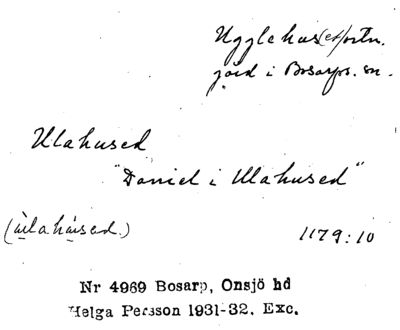 Ugglehus(et) ortn.
jord i Bosarps. sn.
Ulahused
"Daniel i Ulahused"
(ùlahúsed.) 1179:10
Nr 4969 Bosarp, Onsjö hd
Helga Persson 1931-32. Exc.